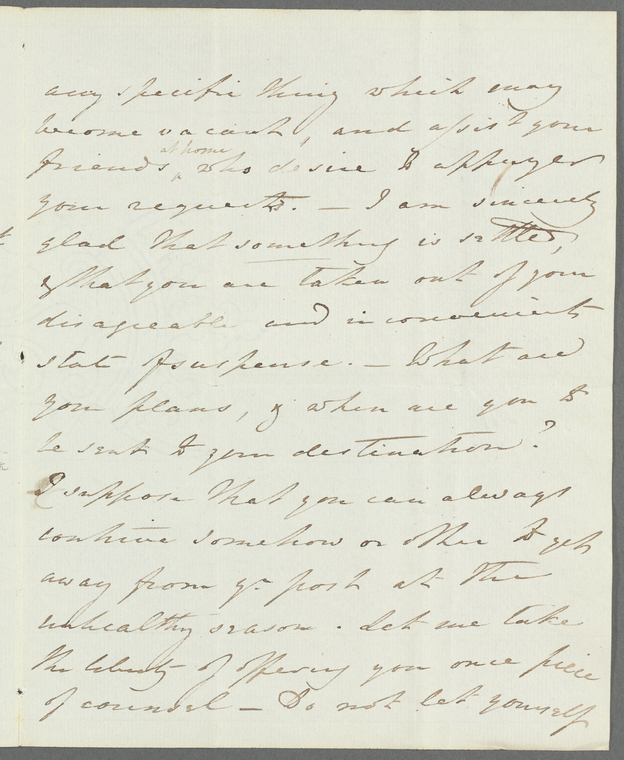 any specific thing which may
become vacant, and assist your
at home
friends, who desire to appuyer
your requests. – I am sincerely
glad that something is settled,
& that you are taken out of your
disagreable and inconvenient
state of suspense. – What are
your plans, & when are you to
be sent to your destination?
I suppose that you can always
contrive somehow or other to get
away from yr. post at the
unhealthy season. Let me take
the liberty of offering you once piece
of counsel – Do not let yourself